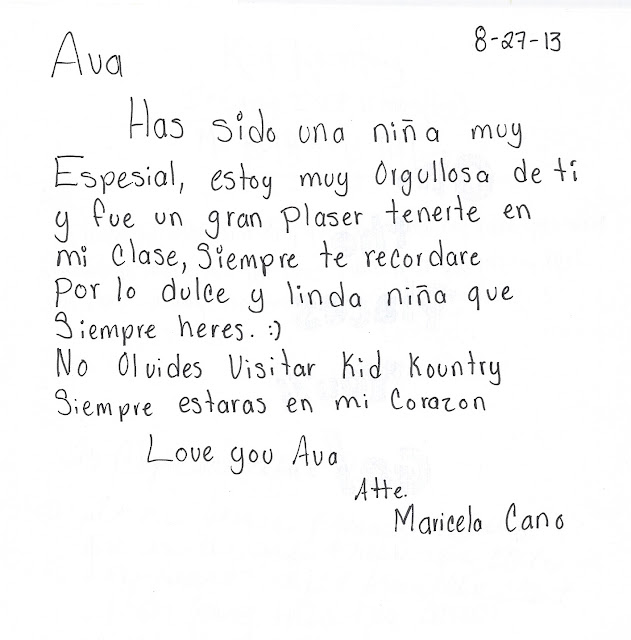 8-27-13
Ava
Has sido una niña muy
Espesial, estoy muy Orgullosa de ti
y fue un gran Plaser tenerte en
mi Clase, Siempre te recordare
Por lo dulce y linda niña que
Siempre heres. :)
No Olvides Visitar Kid Kountry
Siempre estaras en mi Corazon
Love you Ava
Atte.
Maricela Cano